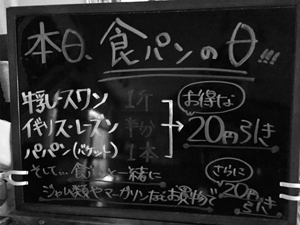 本日、食パンの日!!!
牛乳・スワン 1斤
イギリス・レーズン 半分
パパン(バケット) 1本
お得な
20円引き
そして… 食パンと一緒に
ジャム類やマーガリンなどお買物で
さらに
20円引き